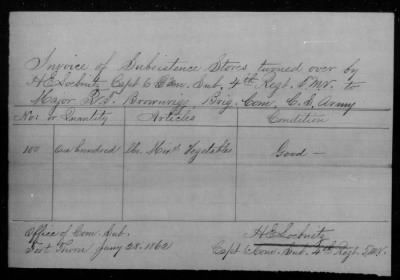 Invoice of Subsistence Stores turned over by
H E Loebnitz Capt & Com. Sub. 4th Regt. T.M.V. to
Major R. T. Brownrigg, Brig. Com. C. S. Army
No: or Quantity Articles Condition
100 One hundred lbs. Mixd Vegetables Good —
Office of Com. Sub. H E Loebnitz
Fort Thorn Jany 28. 1862 Capt & Com. Sub. 4th Regt. T.M.V.